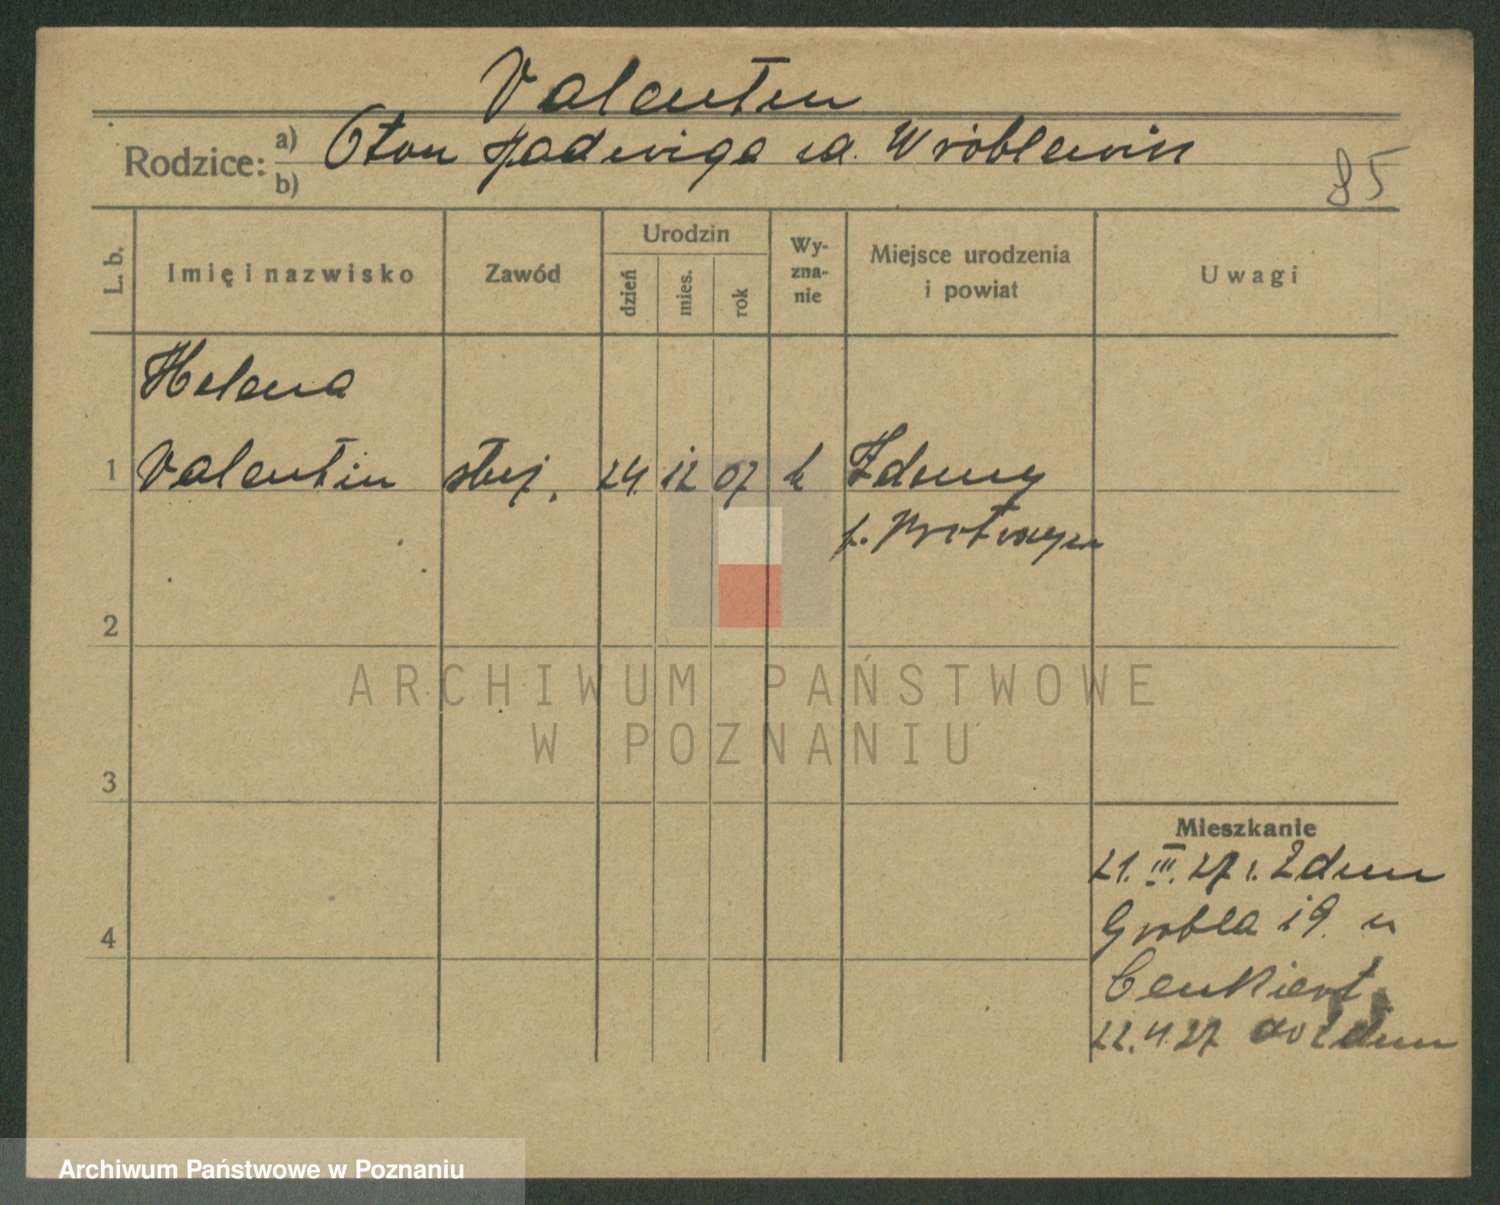 Valentin
Rodzice: a) Oton Jadwiga
b)
85
L. b.
Imię i nazwisko
Zawód
Urodzin
dzień
mies.
rok
Wy-
zna-
nie
Miejsce urodzenia
i powiat
Uwagi
Helena
1 Valentin służ. 24. 12 07 k Zduny
p.
2
ARCHIWUM PAŃSTWOWE
W POZNANIU
3
4
Mieszkanie
21. III. 27 z. Zdun
Grobla 19. u
22. 4. 27 do Zdun
Archiwum Państwowe w Poznaniu